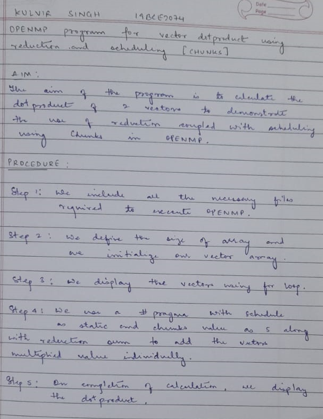 KULVIR SINGH 19BCE2074
OPENMP program for vector dotproduct using
reduction and scheduling [CHUNKS]
AIM:
The aim of the program is to calculate the
dot product of 2 vectors to demonstrate
the use of reduction coupled with scheduling
using Chunks in OPENMP.
PROCEDURE:
Step 1: We include all the necessary files
required to execute OPENMP.
Step 2: We define the size of array and
we initialize our vector array.
Step 3: We display the vectors using for loop.
Step 4: We use a # pragma with schedule
as static and chunks value as 5 along
with reduction sum to add the
multiplied value individually.
Step 5: On completion of calculation, we display
the dot product.
Date
Page